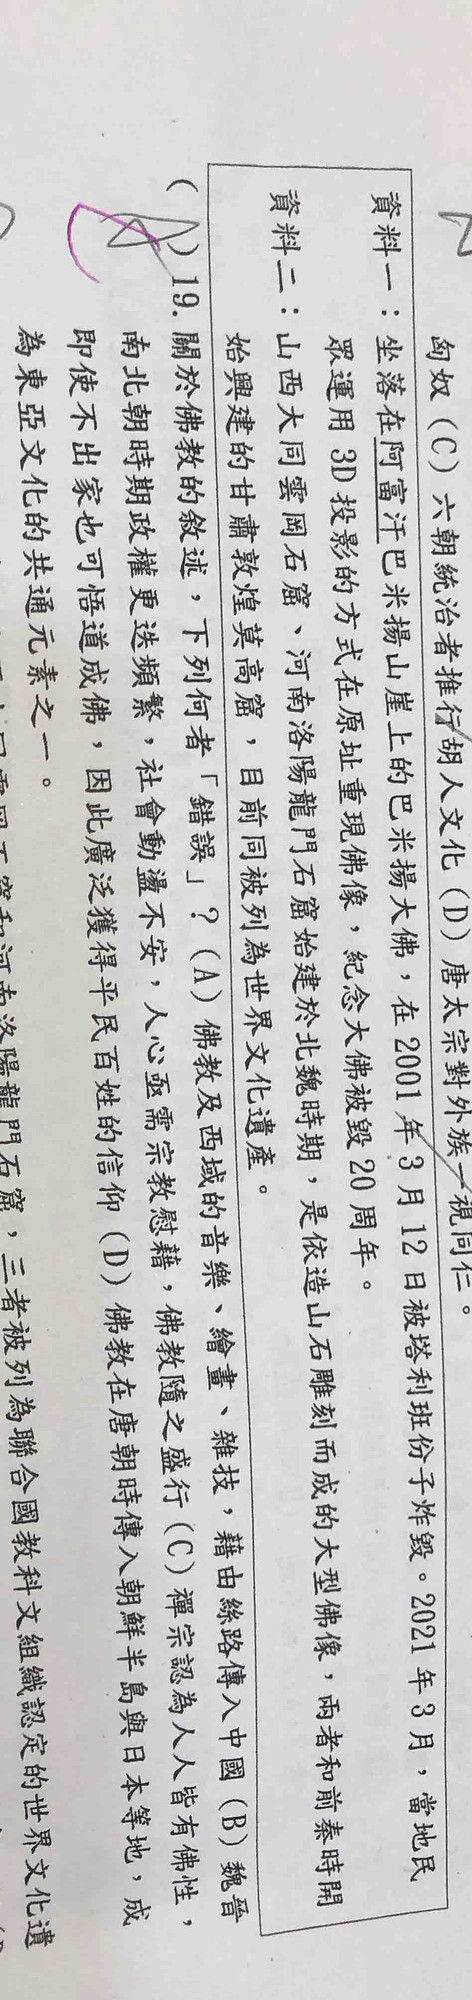 匈奴(C)六朝統治者推行胡人文化(D)唐太宗對外族一視同仁。
資料一：坐落在阿富汗巴米揚山崖上的巴米揚大佛，在2001年3月12日被塔利班份子炸毀。2021年3月，當地民
眾運用3D投影的方式在原址重現佛像，紀念大佛被毀20周年。
資料二：山西大同雲岡石窟、河南洛陽龍門石窟始建於北魏時期，是依造山石雕刻而成的大型佛像，兩者和前秦時開
始興建的甘肅敦煌莫高窟，目前同被列為世界文化遺產。
( )19.關於佛教的敘述，下列何者「錯誤」？(A)佛教及西域的音樂、繪畫、雜技，藉由絲路傳入中國(B)魏晉
南北朝時期政權更迭頻繁，社會動盪不安，人心亟需宗教慰藉，佛教隨之盛行(C)禪宗認為人人皆有佛性，
即使不出家也可悟道成佛，因此廣泛獲得平民百姓的信仰(D)佛教在唐朝時傳入朝鮮半島與日本等地，成
為東亞文化的共通元素之一。
和河南洛陽龍門石窟，三者被列為聯合國教科文組織認定的世界文化遺